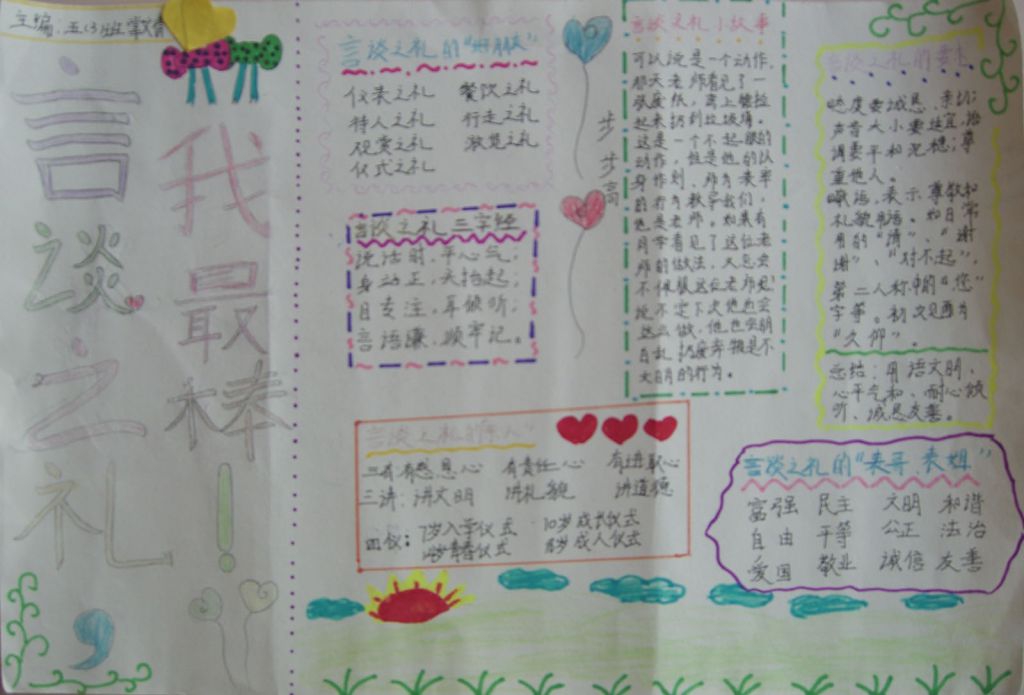 主编：五(3)班
言谈之礼，
我最棒！
言谈之礼的“好朋友”
仪表之礼 餐饮之礼
待人之礼 行走之礼
观赏之礼 游览之礼
仪式之礼
言谈之礼三字经
说话时，平心气；
身动正，头抬起；
目专注，耳倾听；
言语谦，顺牢记。
步步高
言谈之礼小故事
可以说是一个动作，
那天老师看见了一
张废纸，马上捡拉
起来扔到垃圾桶。
这是一个不起眼的
动作，但是他的以
身作则，
他是老师。如果有
同学看见了这位老
师的做法，
不佩服这位老师呢？
说不定下次他也会
这么做，他也会明
白乱扔废弃物是不
文明的行为。
态度要诚恳、亲切；
声音大小要适宜，语
调要平和沉稳；尊
重他人。
敬语，表示尊敬和
礼貌用语。如日常
用的“请”、“谢
谢”、“对不起”，
第二人称中的“您”
字等。初次见面为
“久仰”。
总结：用语文明、
心平气和、耐心倾
听、诚恳友善。
三有：有感恩心 有责任心 有进取心
三讲：讲文明 讲礼貌 讲道德
四仪：7岁入学仪式 10岁成长仪式
14岁青春仪式 18岁成人仪式
言谈之礼的“表哥、表姐”
富强 民主 文明 和谐
自由 平等 公正 法治
爱国 敬业 诚信 友善